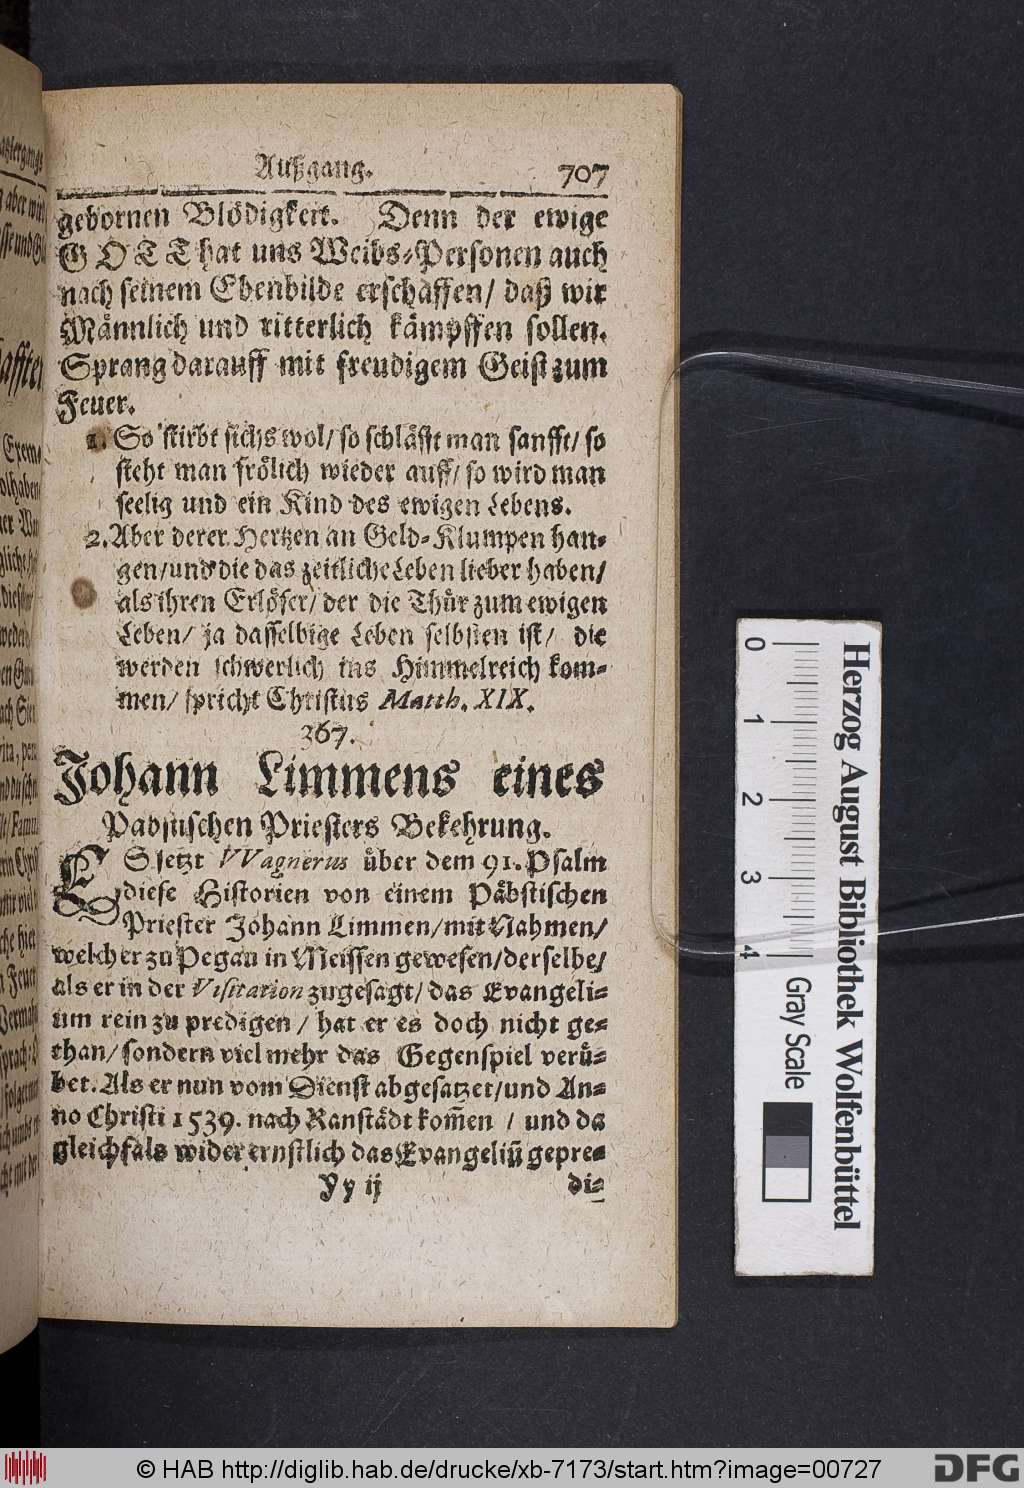 Außgang. 707
gebornen Blödigkeit. Denn der ewige
GOTT hat uns Weibs-Personen auch
nach seinem Ebenbilde erschaffen/ daß wir
Männlich und ritterlich kämpffen sollen.
Sprang darauff mit freudigem Geist zum
Feuer.
1. So stirbt sichs wol/ so schläfft man sanfft/ so
steht man frölich wieder auff/ so wird man
seelig und ein Kind des ewigen Lebens.
2. Aber derer Hertzen an Geld-Klumpen han-
gen/ und die das zeitliche Leben lieber haben/
als ihren Erlöser/ der die Thür zum ewigen
Leben/ ja dasselbige Leben selbsten ist/ die
werden schwerlich ins Himmelreich kom-
men/ spricht Christus Matth. XIX.
367.
Johann Limmens eines
Päbstischen Priesters Bekehrung.
ES setzt VVagnerus über dem 91. Psalm
diese Historien von einem Päbstischen
Priester Johann Limmen/ mit Nahmen/
welcher zu Pegau in Meissen gewesen/ derselbe/
als er in der Visitation zugesagt/ das Evangeli-
um rein zu predigen/ hat er es doch nicht ge-
than/ sondern viel mehr das Gegenspiel verü-
bet. Als er nun vom Dienst abgesatzet/ und An-
no Christi 1539. nach Ranstädt kom̄en/ und da
gleichfals wider ernstlich das Evangeliū gepre-
Yy ij di-
0 1 2 3 4
Gray Scale
Herzog August Bibliothek Wolfenbüttel
© HAB http://diglib.hab.de/drucke/xb-7173/start.htm?image=00727
DFG